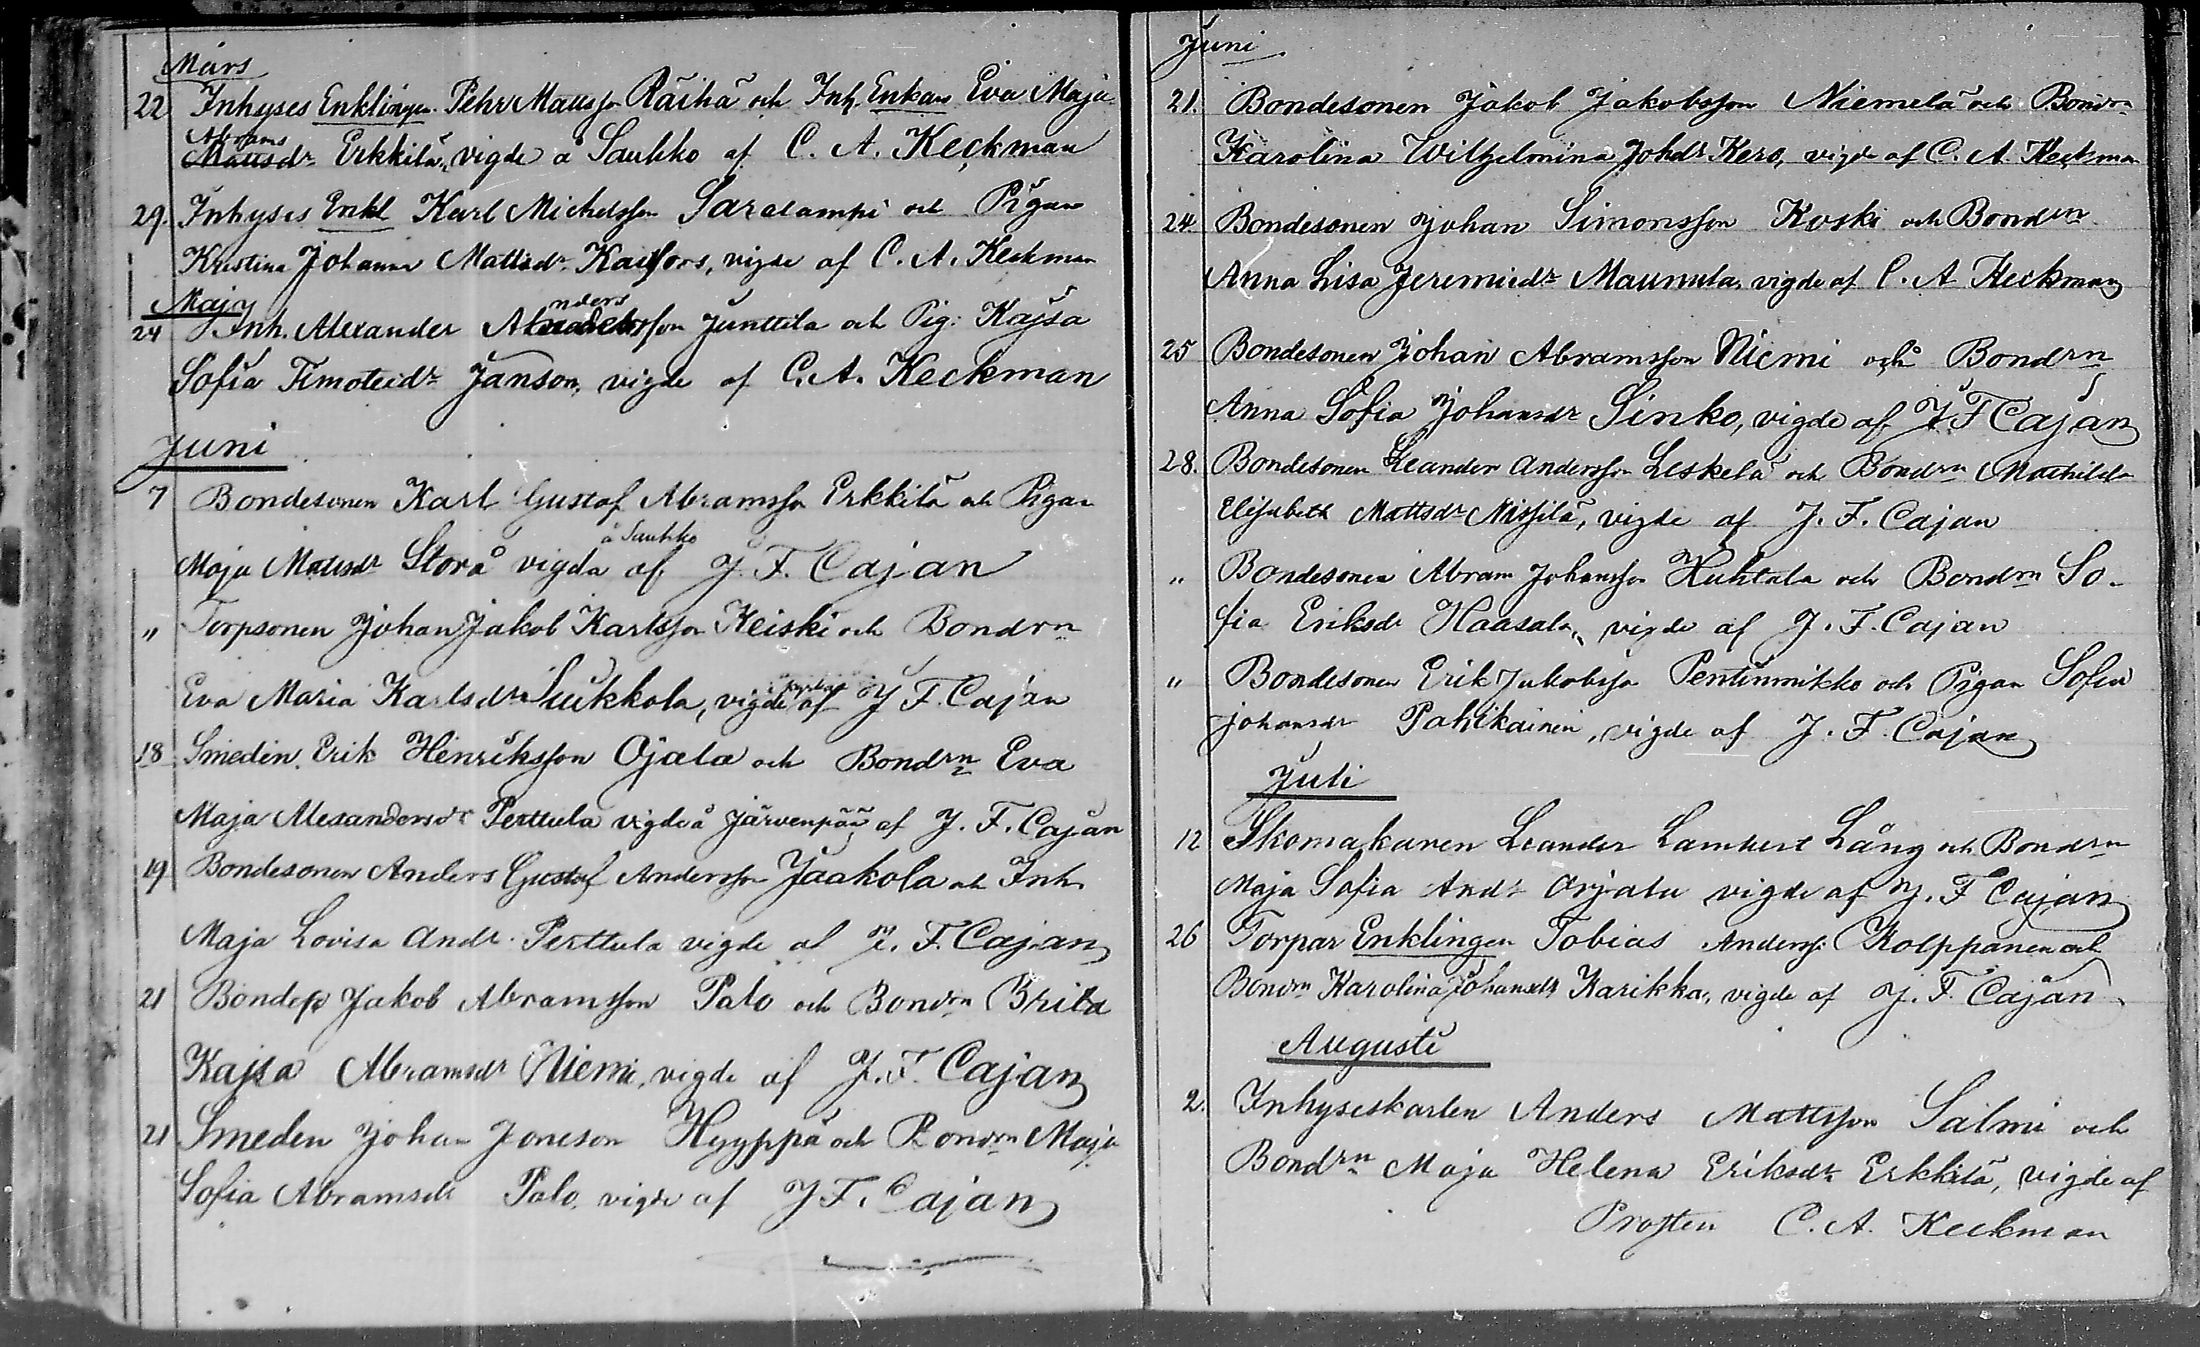 Mars
22 Inhyses Enklingen Pehr Mattsson Räihä och Inh. Enkan Eva Maja
Abrams
Mattsdr Erkkilä, vigde å Saukko af C. A. Keckman
29. Inhyses Enkl Karl Michelsson Saralampi och Pigan
Kristina Johanna Mattsdr Kaifors, vigde af C. A. Keckman
Maj
nders
24 Inh. Alexander Alexandersson Junttila och Pig. Kajsa
Sofia Timoteidr Janson, vigde af C. A. Keckman
Juni
7 Bondesonen Karl Gustaf Abramsson Erkkilä och Pigan
å Saukko
Maja Mattsdr Storå vigda af J. F. Cajan
" Torpsonen Johan Jakob Karlsson Keiski och Bondrn
Eva Maria Karlsdr Luukkola, vigde af J F. Cajan
18 Smeden Erik Henriksson Ojala och Bondrn Eva
Maja Alexandersdr Perttula vigde å Järvenpää af J. F. Cajan
19 Bondesonen Anders Gustaf Andersson Jaakola och Inh
Maja Lovisa Andr. Perttula vigde af J. F. Cajan
21 Bondess Jakob Abramsson Palo och Bondrn Brita
Kajsa Abramsdr Niemi, vigde af J. F. Cajan
21 Smeden Johan Joneson Hyyppä och Bondrn Maja
Sofia Abramsdr Palo, vigde af J F. Cajan
Juni
21. Bondesonen Jakob Jakobsson Niemelä och Bondrn
Karolina Wilhelmina Johdr Kero, vigde af C. A. Keckman
24 Bondesonen Johan Simonsson Koski och Bondrn
Anna Lisa Jeremiedr Maunula, vigde af C. A Keckman
25 Bondesonen Johan Abramsson Niemi och Bondrn
Anna Sofia Johansdr Sinko, vigde af J F Cajan
28. Bondesonen Leander Andersson Leskelä och Bondrn Mathilda
Elisabeth Mattsdr Nissilä, vigde af J. F. Cajan
" Bondesonen Abram Johansson Huhtala och Bondrn So-
fia Eriksdr Haasala, vigde af J. F. Cajan
" Bondesonen Erik Jakobsson Pentinmikko och Pigan Sofia
Johansdr Pahikainen, vigde af J. F. Cajan
Juli
12 Skomakaren Leander Lambert Lång och Bondrn
Maja Sofia Andr Orjala vigde af J. F Cajan
26 Torpar Enklingen Tobias Anderss. Kolppanen och
Bondrn Karolina Johansdr Karikka, vigde af J. F. Cajan
Augusti
2. Inhyseskarlen Anders Mattsson Salmi och
Bondrn Maja Helena Eriksdr Erkkilä, vigde af
Prosten C. A. Keckman